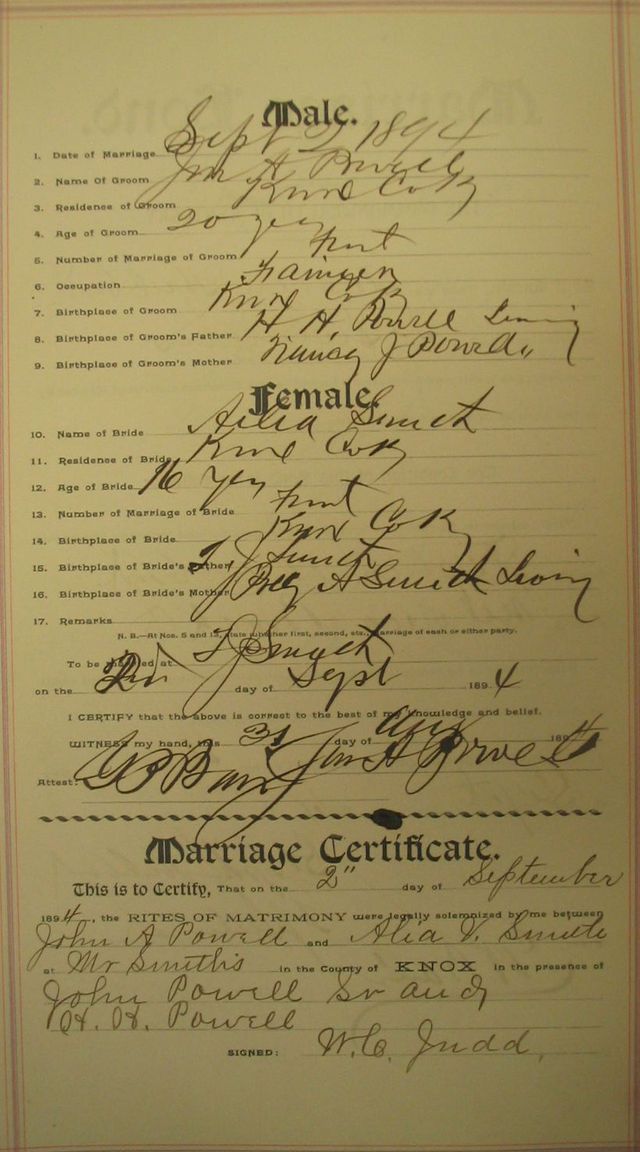 Male.
1. Date of Marriage Sept 2, 1894
2. Name Of Groom Jno A Powell
3. Residence of Groom Knox Co Ky
4. Age of Groom 20 years
5. Number of Marriage of Groom First
6. Occupation Farmer
7. Birthplace of Groom Knox Co Ky
8. Birthplace of Groom's Father H H, Powell Living
9. Birthplace of Groom's Mother Nancy J Powell "
Female.
10. Name of Bride Smith
11. Residence of Bride Knox Co Ky
12. Age of Bride 16 yrs
13. Number of Marriage of Bride First
14. Birthplace of Bride Knox Co Ky
15. Birthplace of Bride's Father J Smith
16. Birthplace of Bride's Mother A Smith Living
17. Remarks
N. B.—At Nos. 5 and 13, state whether first, second, etc., marriage of each or either party.
To be married at J Smith
on the 2n day of Sept 1894
I CERTIFY that the above is correct to the best of my knowledge and belief.
WITNESS my hand, this 31 day of Aug 1894
Attest: Jno A Powell
Marriage Certificate.
This is to Certify, That on the 2" day of September
1894, the RITES OF MATRIMONY were legally solemnized by me between
John A Powell and Alia V. Smith
at Mr Smiths in the County of KNOX in the presence of
John Powell Sr and
H. H. Powell
SIGNED: W. C. Judd.